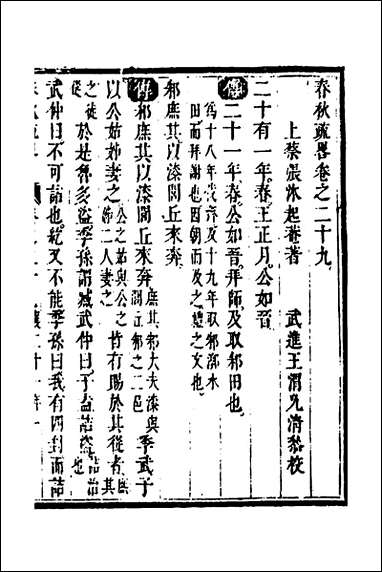 春秋疏畧卷之二十九
上蔡張沐起菴著 武進王渭允清㽔校
二十有一年春王正月公如晉
傳二十一年春公如晉拜師及取邾田也
爲十八年伐齊及十九年取邾漷水
田而拜謝因朝而及之禮之文也
邾庶其以漆閭丘來奔
傳邾庶其以漆閭丘來奔庶其邾大夫漆與閭丘邾之二邑季武子
以公姑姊妻之公之姑與公之姊二人妻之皆有賜於其從者庶其
之徒從於是魯多盜季孫謂臧武仲曰子盍詰盜詰治也
武仲曰不可詰也紇又不能季孫曰我有四封而詰